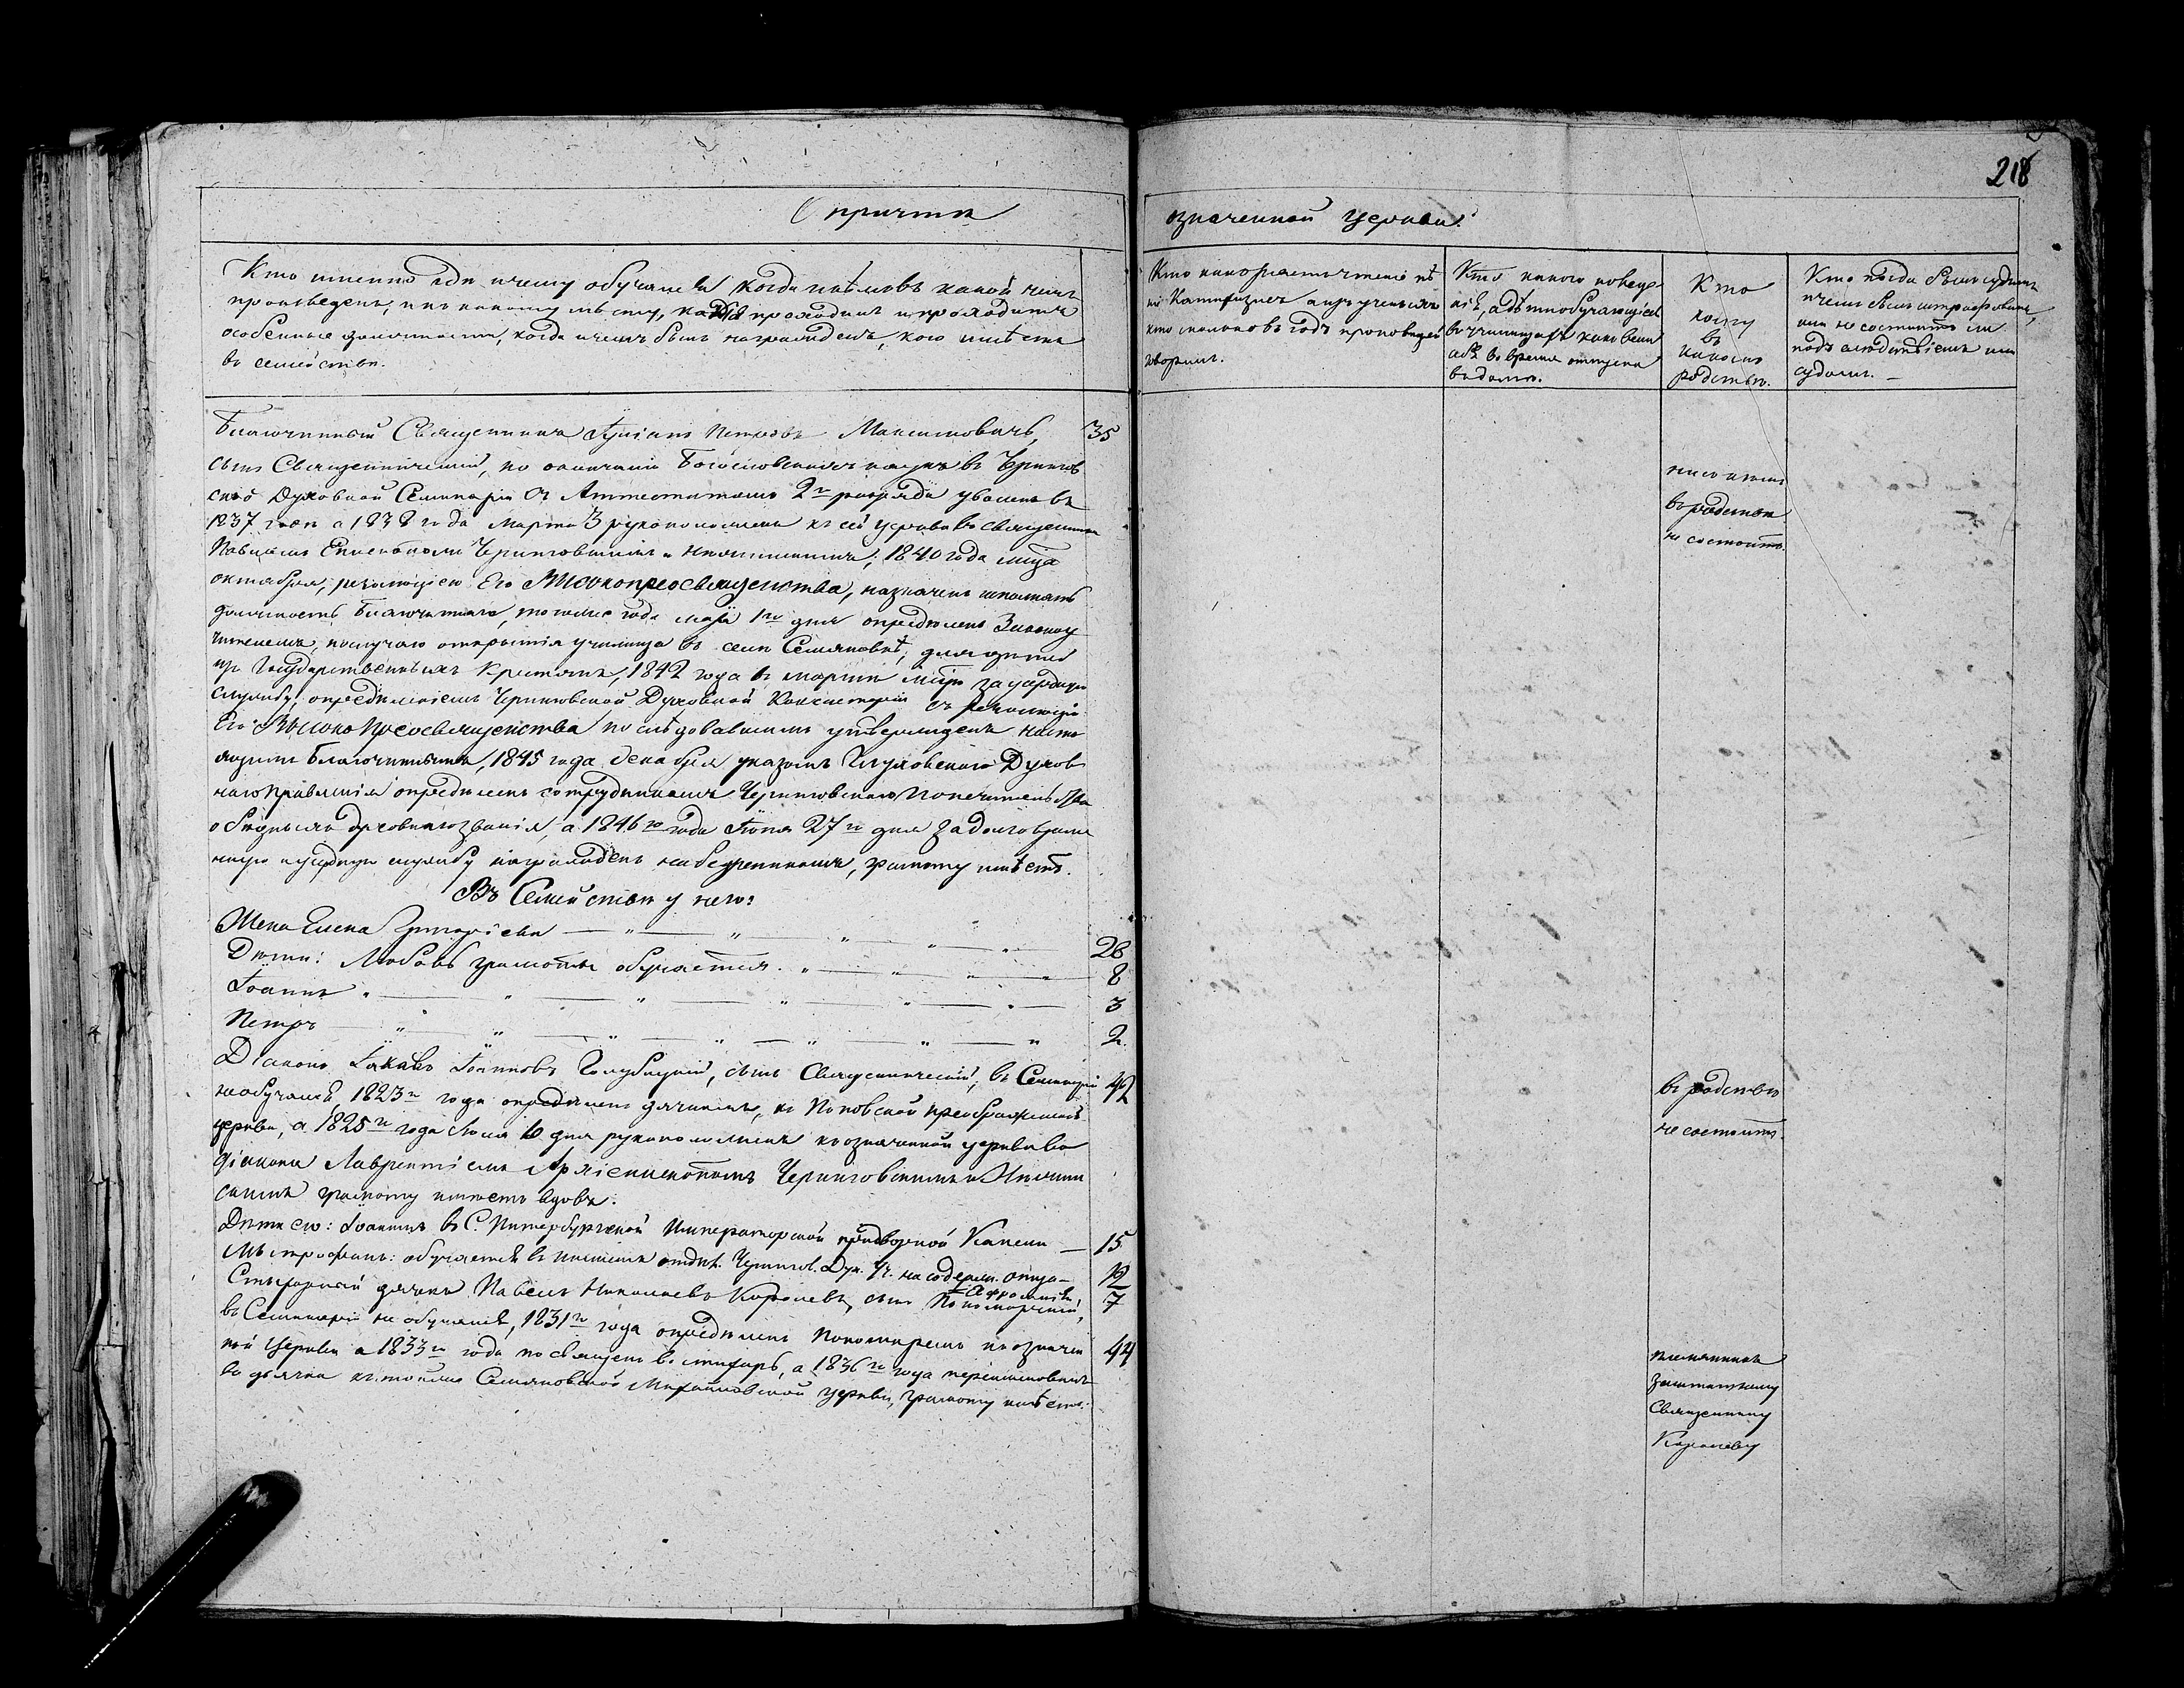 218
О причтѣ
означенной церкви.
Кто именно гдѣ и чему обучался когда кѣмъ въ какой чинъ
произведенъ, и къ какому мѣсту, какія проходилъ и проходитъ
особенныя должности, когда и чѣмъ былъ награжденъ, кого имѣетъ
въ семействѣ.
Кто
кому
въ
какомъ
родствѣ.
Кто когда былъ судимъ
и чемъ былъ штрафованъ,
или не состоитъ ли
подъ слѣдствіемъ или
судомъ. —
Благочинный Священникъ Іуліанъ Петровъ Максимовичъ, 35
сынъ Священническій, по окончаніи Богословскихъ наукъ въ Чернигов
ской Духовной Семинаріи съ Аттестатомъ 2го разряда уволенъ въ
1837 годѣ а 1838 года Марта 3 рукоположенъ къ сей церкви во священника
Павломъ Епископомъ Черниговскимъ и Нѣжинскимъ; 1840 года мца
октября, резолюціею Его Высокопреосвященства, назначенъ исполнять
должность Благочиннаго, того же года маія 1го дня опредѣленъ Законоу
чителемъ, по случаю открытія училища въ селѣ Семяновкѣ, для дѣтей
Государственныхъ Крестьянъ, 1842 года въ мартѣ мцѣ за усердную
службу, опредѣленіемъ Черниговской Духовной Консисторіи съ резолюціи
Его Высокопреосвященства послѣдовавшимъ утвержденъ насто
ящимъ Благочиннымъ, 1845 года декабря указомъ Глуховскаго Духов
наго Правленія опредѣленъ сотрудникомъ Черниговскаго Попечительства
о бѣдныхъ духовнаго званія, а 1846го года Іюня 27го дня за долговремен
ную и усердную службу награжденъ набедренникомъ, грамоту имѣетъ.
Въ Семействѣ у него:
Жена Елена Григоріева — 28
Дѣти: Любовь грамотѣ обучается. 8
Іоаннъ 3
Петръ 2.
Діаконъ Іаковъ Іоанновъ Голубицкій, сынъ Священническій, въ Семинаріи 42
не обучался, 1823го года опредѣленъ дячкомъ, къ Поповской преображенской
церкви, а 1825го года Іюля 10 дня рукоположенъ къ означенной церкви во
діакона Лаврентіемъ Архіепископомъ Черниговскимъ и Нѣжин
скимъ грамоту имѣетъ вдовъ.
Дѣти его: Іоаннъ въ С. Питербургской Императорской придворной Капели — 15
Митрофанъ: обучается въ нисшемъ отдѣл. Чернигов. Дух. Уч. на содерж. отца — 12
7
Стихарный дячекъ Павелъ Николаевъ Королевъ, сынъ Пономарскій,
въ Семинаріи не обучался, 1831го года опредѣленъ Пономаремъ къ означен
ной Церкви а 1833го года посвященъ въ стихарь, а 1836го года переименованъ 44
во дьячка къ той же Семяновской Михайловской церкви, грамоту имѣетъ.
въ родствѣ
не состоитъ.
въ родствѣ
не состоитъ.
племянникъ
заштатному
Священнику
Королеву